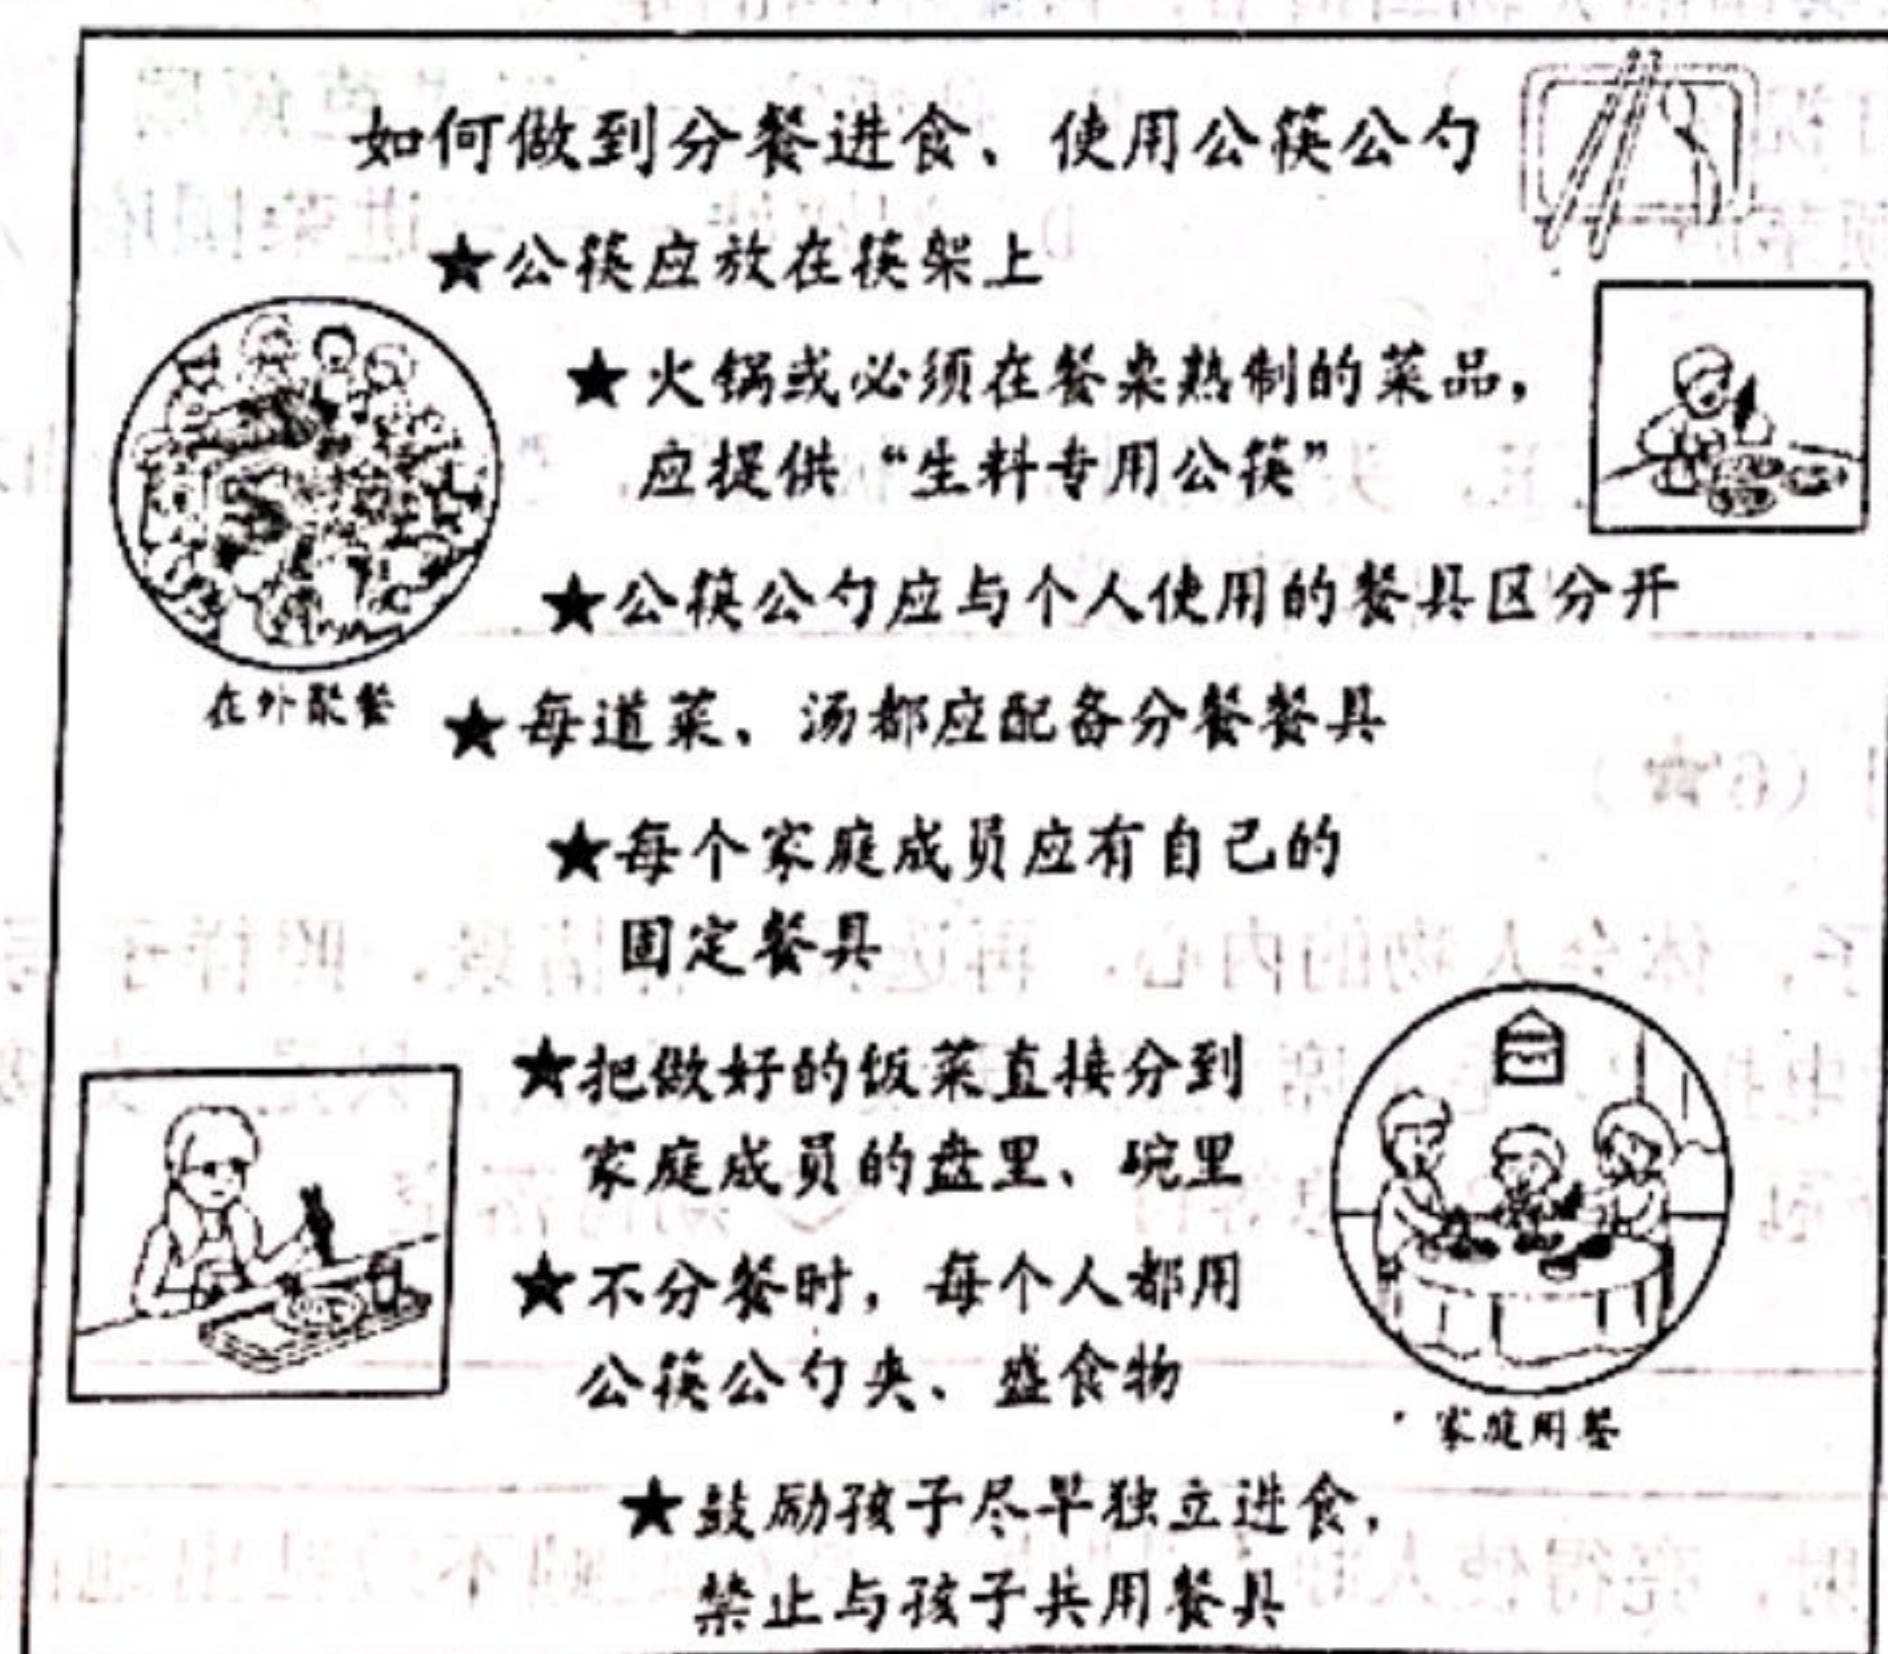 如何做到分餐进食、使用公筷公勺
★公筷应放在筷架上
★火锅或必须在餐桌熟制的菜品，
应提供“生料专用公筷”
★公筷公勺应与个人使用的餐具区分开
在外聚餐
★每道菜、汤都应配备分餐餐具
★每个家庭成员应有自己的
固定餐具
★把做好的饭菜直接分到
家庭成员的盘里、碗里
★不分餐时，每个人都用
公筷公勺夹、盛食物
家庭用餐
★鼓励孩子尽早独立进食，
禁止与孩子共用餐具